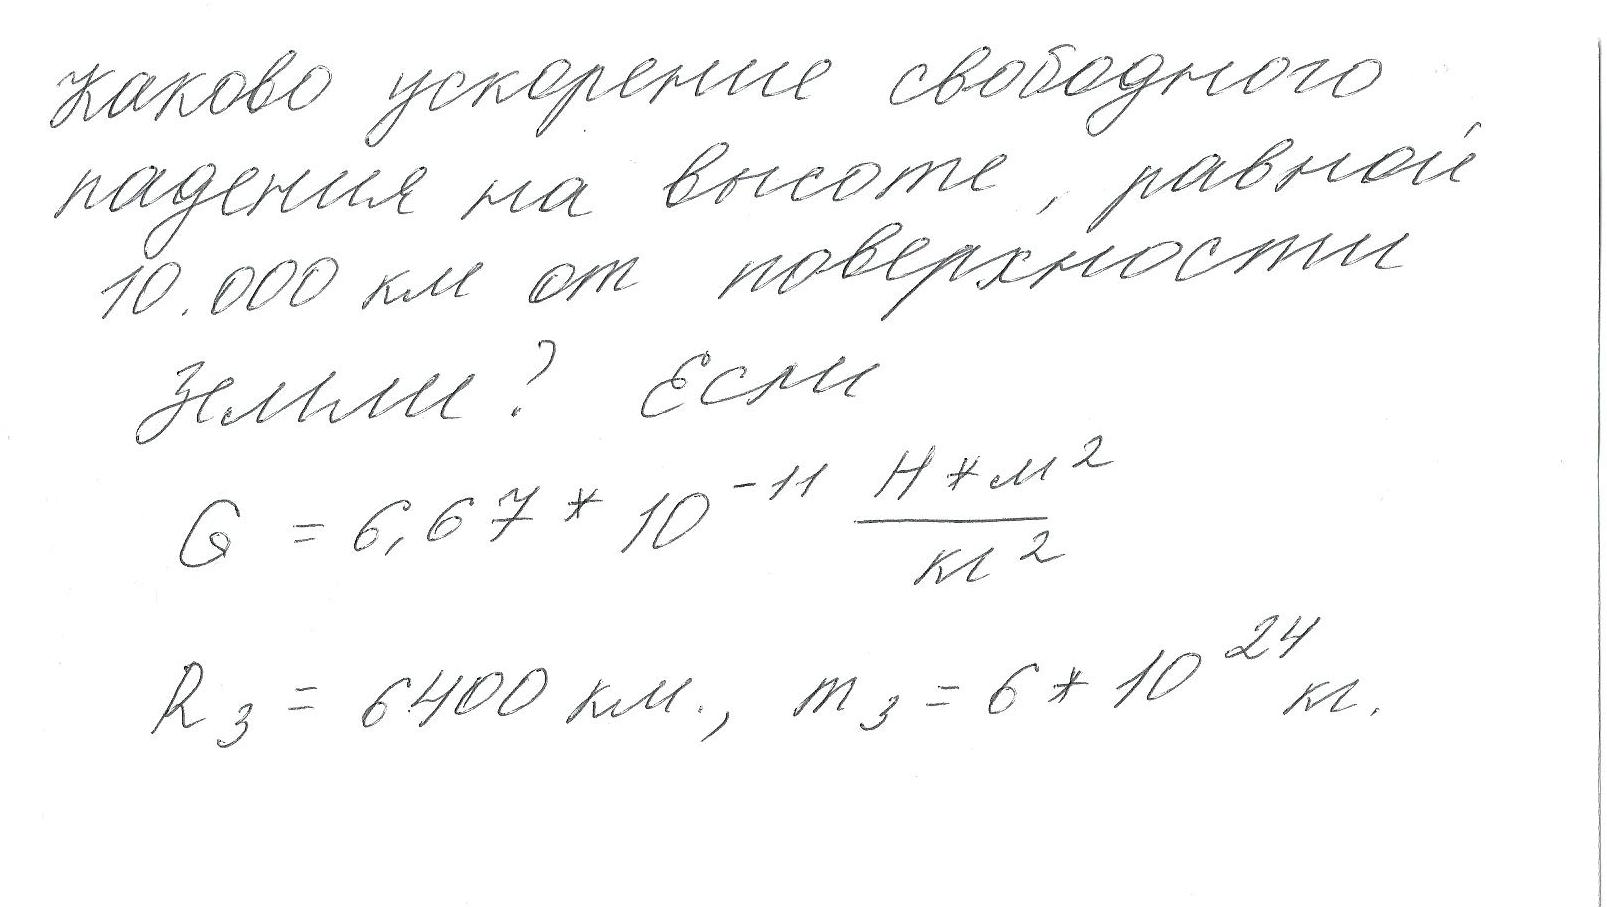 Каково ускорение свободного
падения на высоте, равной
10.000 км от поверхности
Земли? Если
G = 6,67 * 10⁻¹¹ Н*м² / кг²
R₃ = 6400 км., m₃ = 6 * 10²⁴ кг.